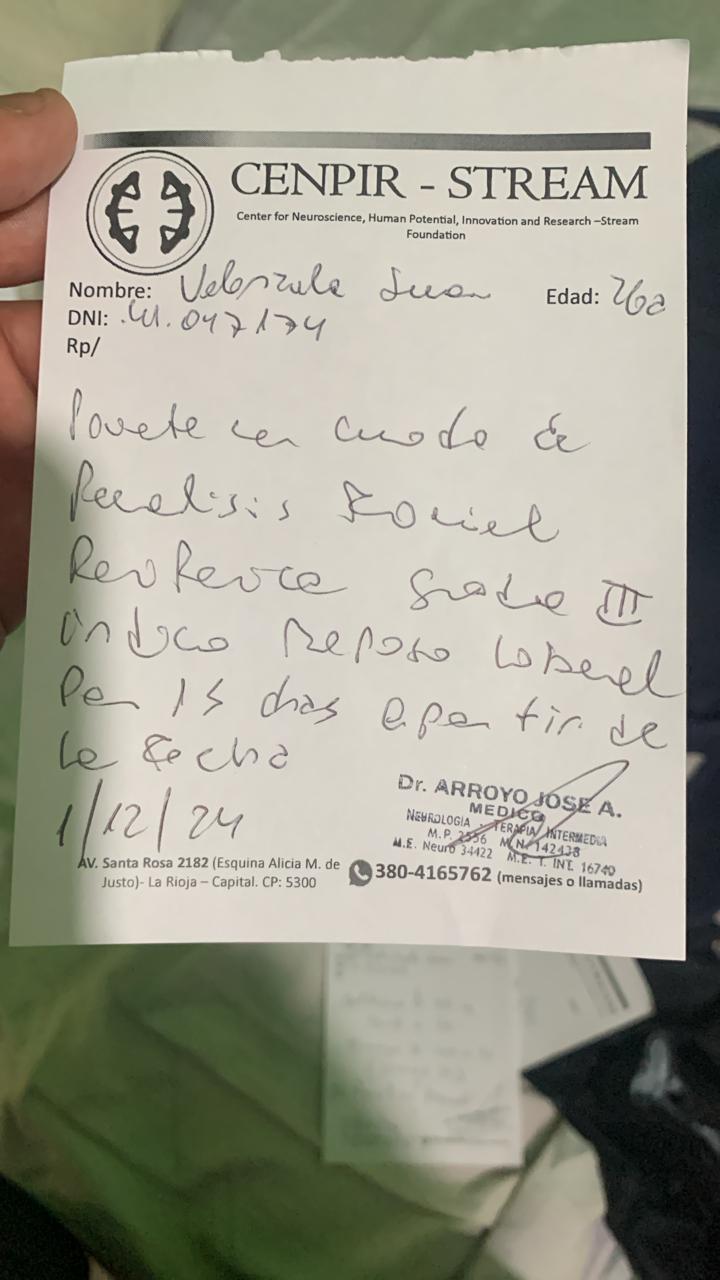 CENPIR - STREAM
Center for Neuroscience, Human Potential, Innovation and Research –Stream
Foundation
Nombre: Valenzuela Juan Edad: 26a
DNI: 41.047174
Rp/
Paciente con cuadro de
Paralisis Facial
Periferica grado III
indico reposo laboral
Por 15 dias a partir de
la Fecha
1/12/24
Dr. ARROYO JOSE A.
MEDICO
NEUROLOGIA - TERAPIA INTERMEDIA
M.P. 2556 M.N. 142438
M.E. Neuro 34422 M.E. T. INT. 16740
AV. Santa Rosa 2182 (Esquina Alicia M. de
Justo)- La Rioja – Capital. CP: 5300
380-4165762 (mensajes o llamadas)